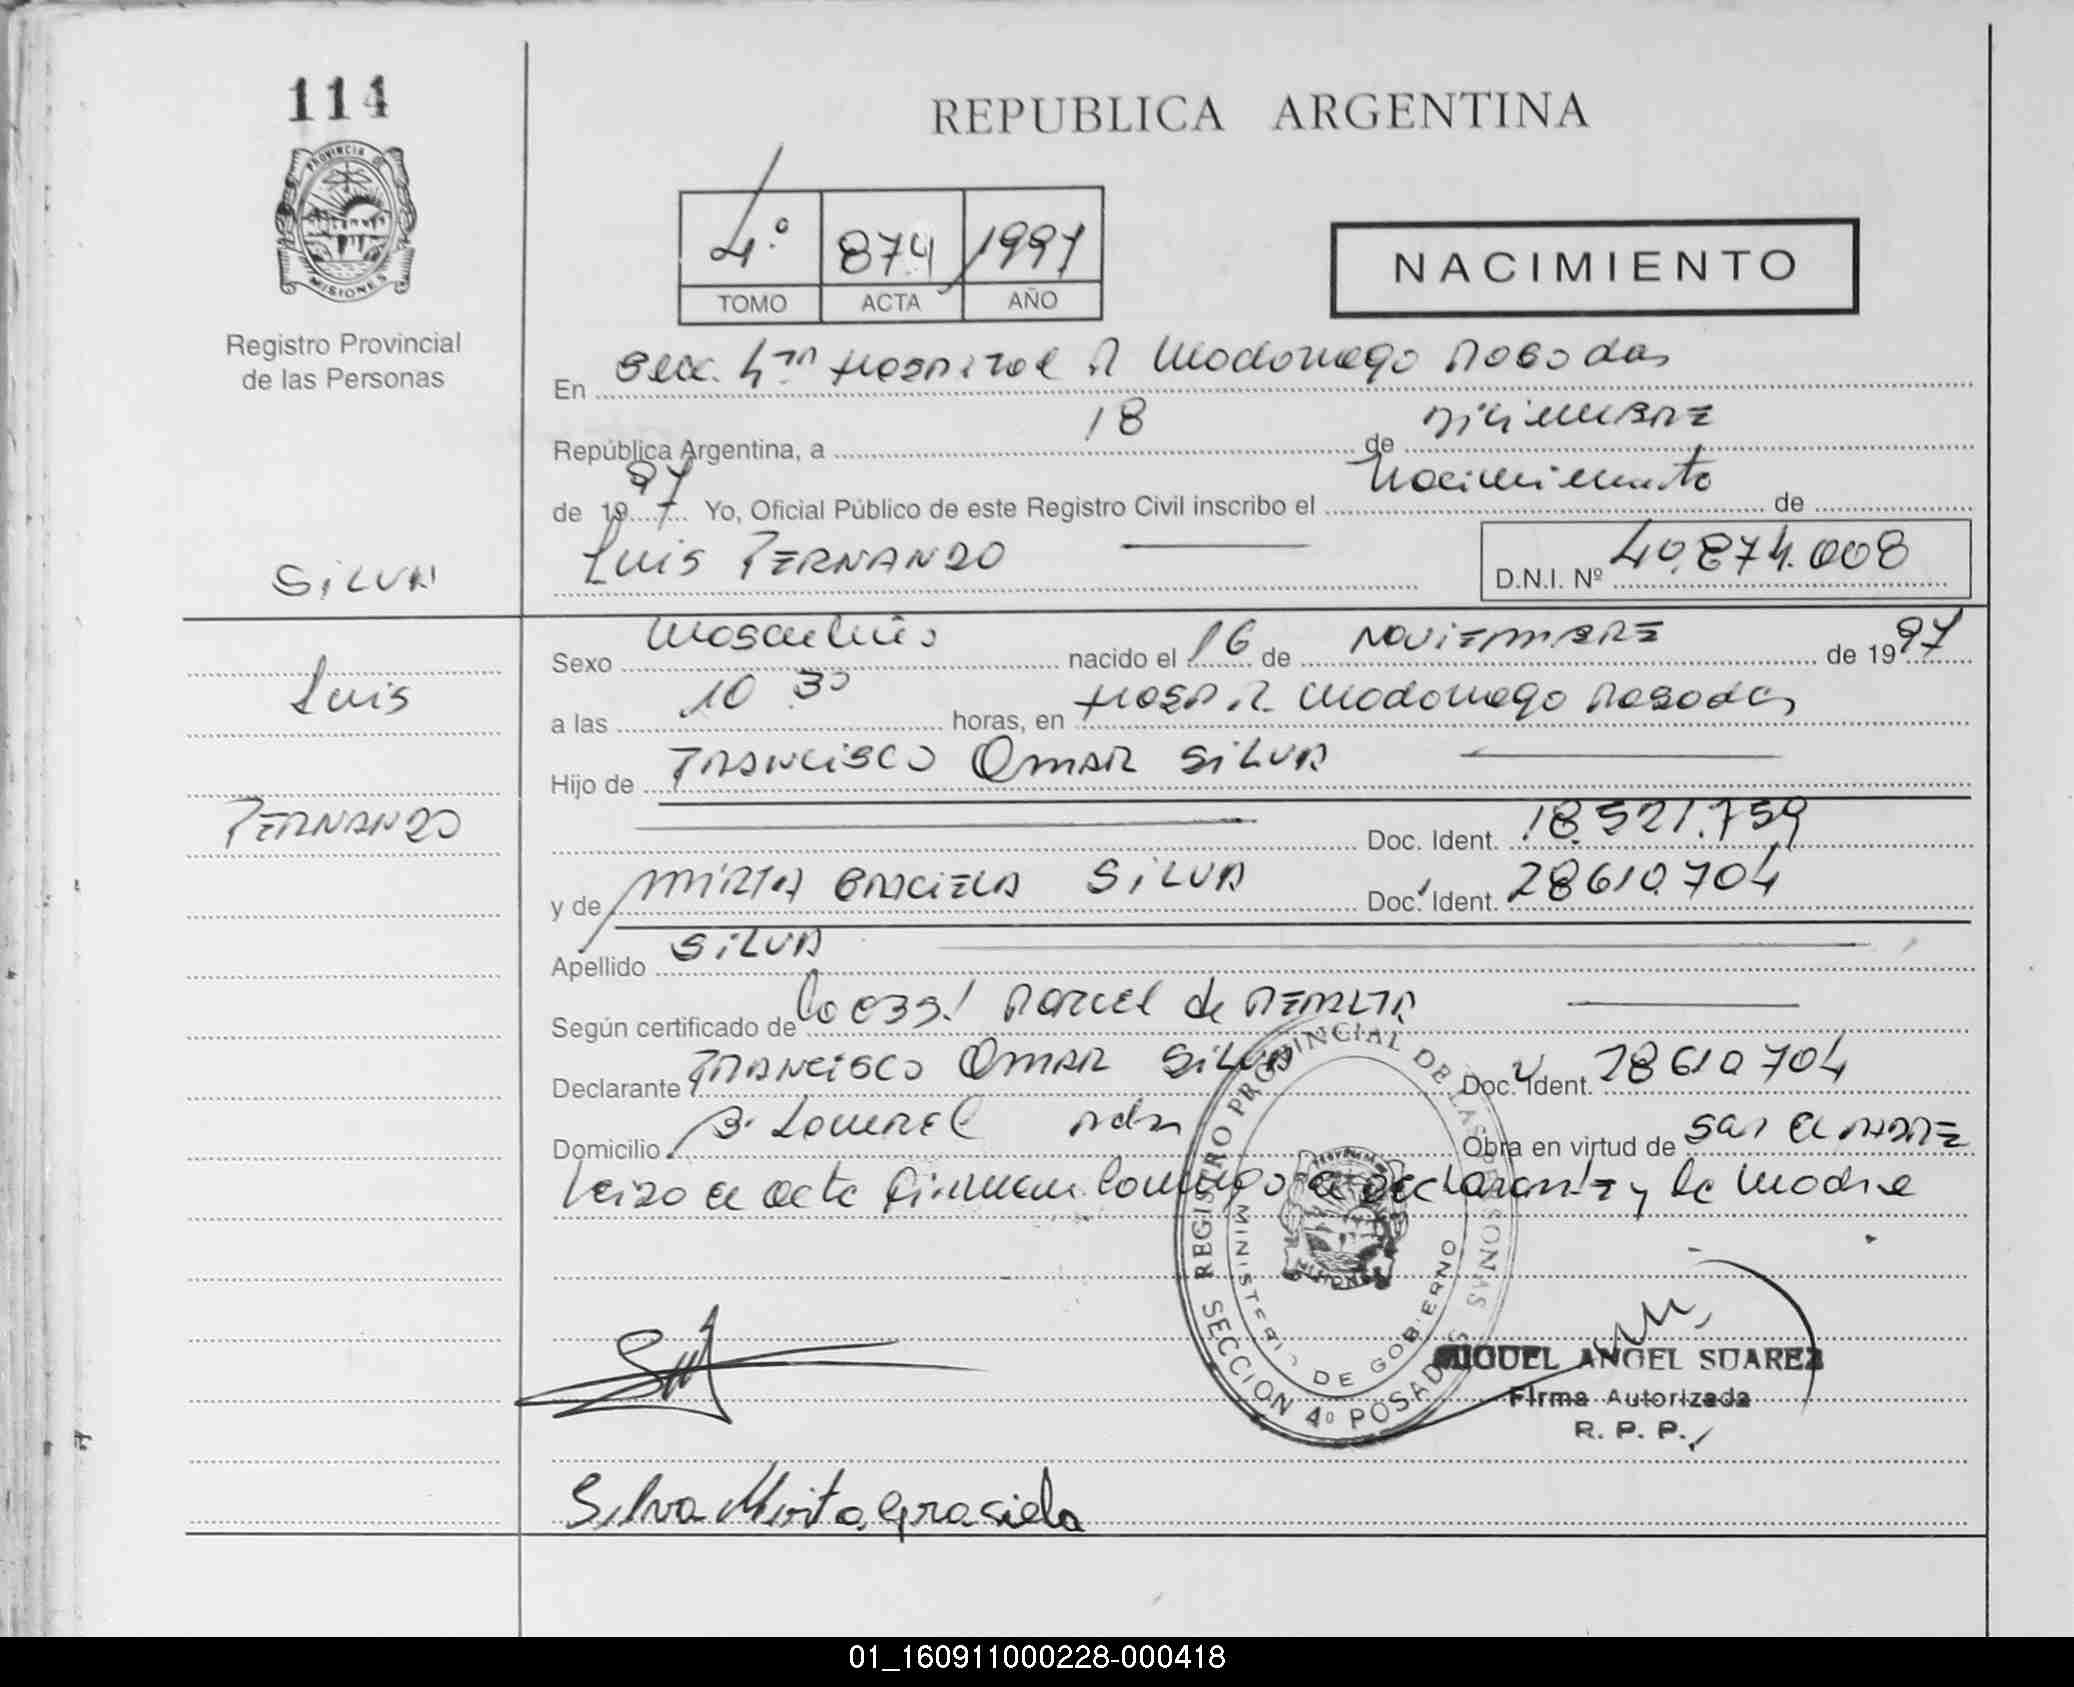 114
PROVINCIA DE
MISIONES
Registro Provincial
de las Personas
REPUBLICA ARGENTINA
4º 874 1997
TOMO ACTA AÑO
NACIMIENTO
En Secc. 4ta Hospital R Madariaga Posadas
República Argentina, a 18 de Diciembre
de 1997 Yo, Oficial Público de este Registro Civil inscribo el Nacimiento de
Luis Fernando D.N.I. Nº 40.874.008
Silva
Luis
Fernando
Sexo Masculino nacido el 16 de Noviembre de 1997
a las 10 30 horas, en Hosp. R. Madariaga Posadas
Hijo de Francisco Omar Silva
Doc. Ident. 18.521.759
y de Mirta Graciela Silva Doc. Ident. 28610704
Apellido Silva
Según certificado de
Declarante Francisco Omar Silva Doc. Ident. 28610704
Domicilio B. Obra en virtud de ser el padre
Leído el acta firman conmigo el declarante y la madre
REGISTRO PROVINCIAL DE LAS PERSONAS
MINISTERIO DE GOBIERNO
SECCION 4º POSADAS
MIGUEL ANGEL SUAREZ
Firma Autorizada
R. P. P.
Silva Mirta Graciela
01_160911000228-000418